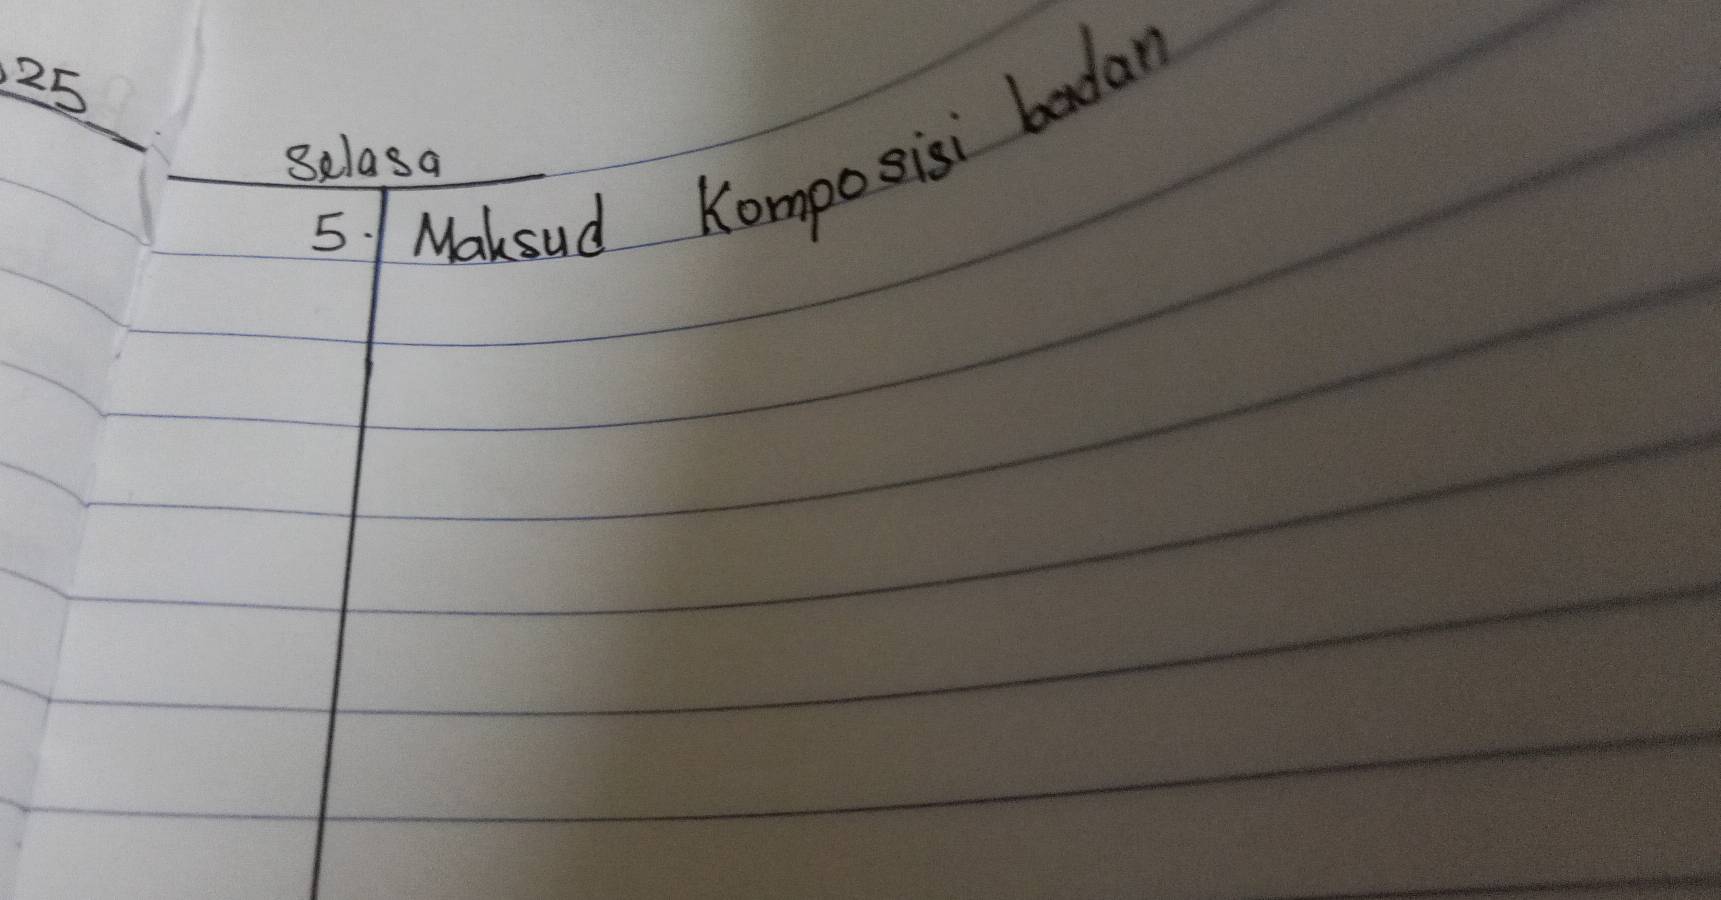 25
Selasa
5. Maksud Komposisi badan